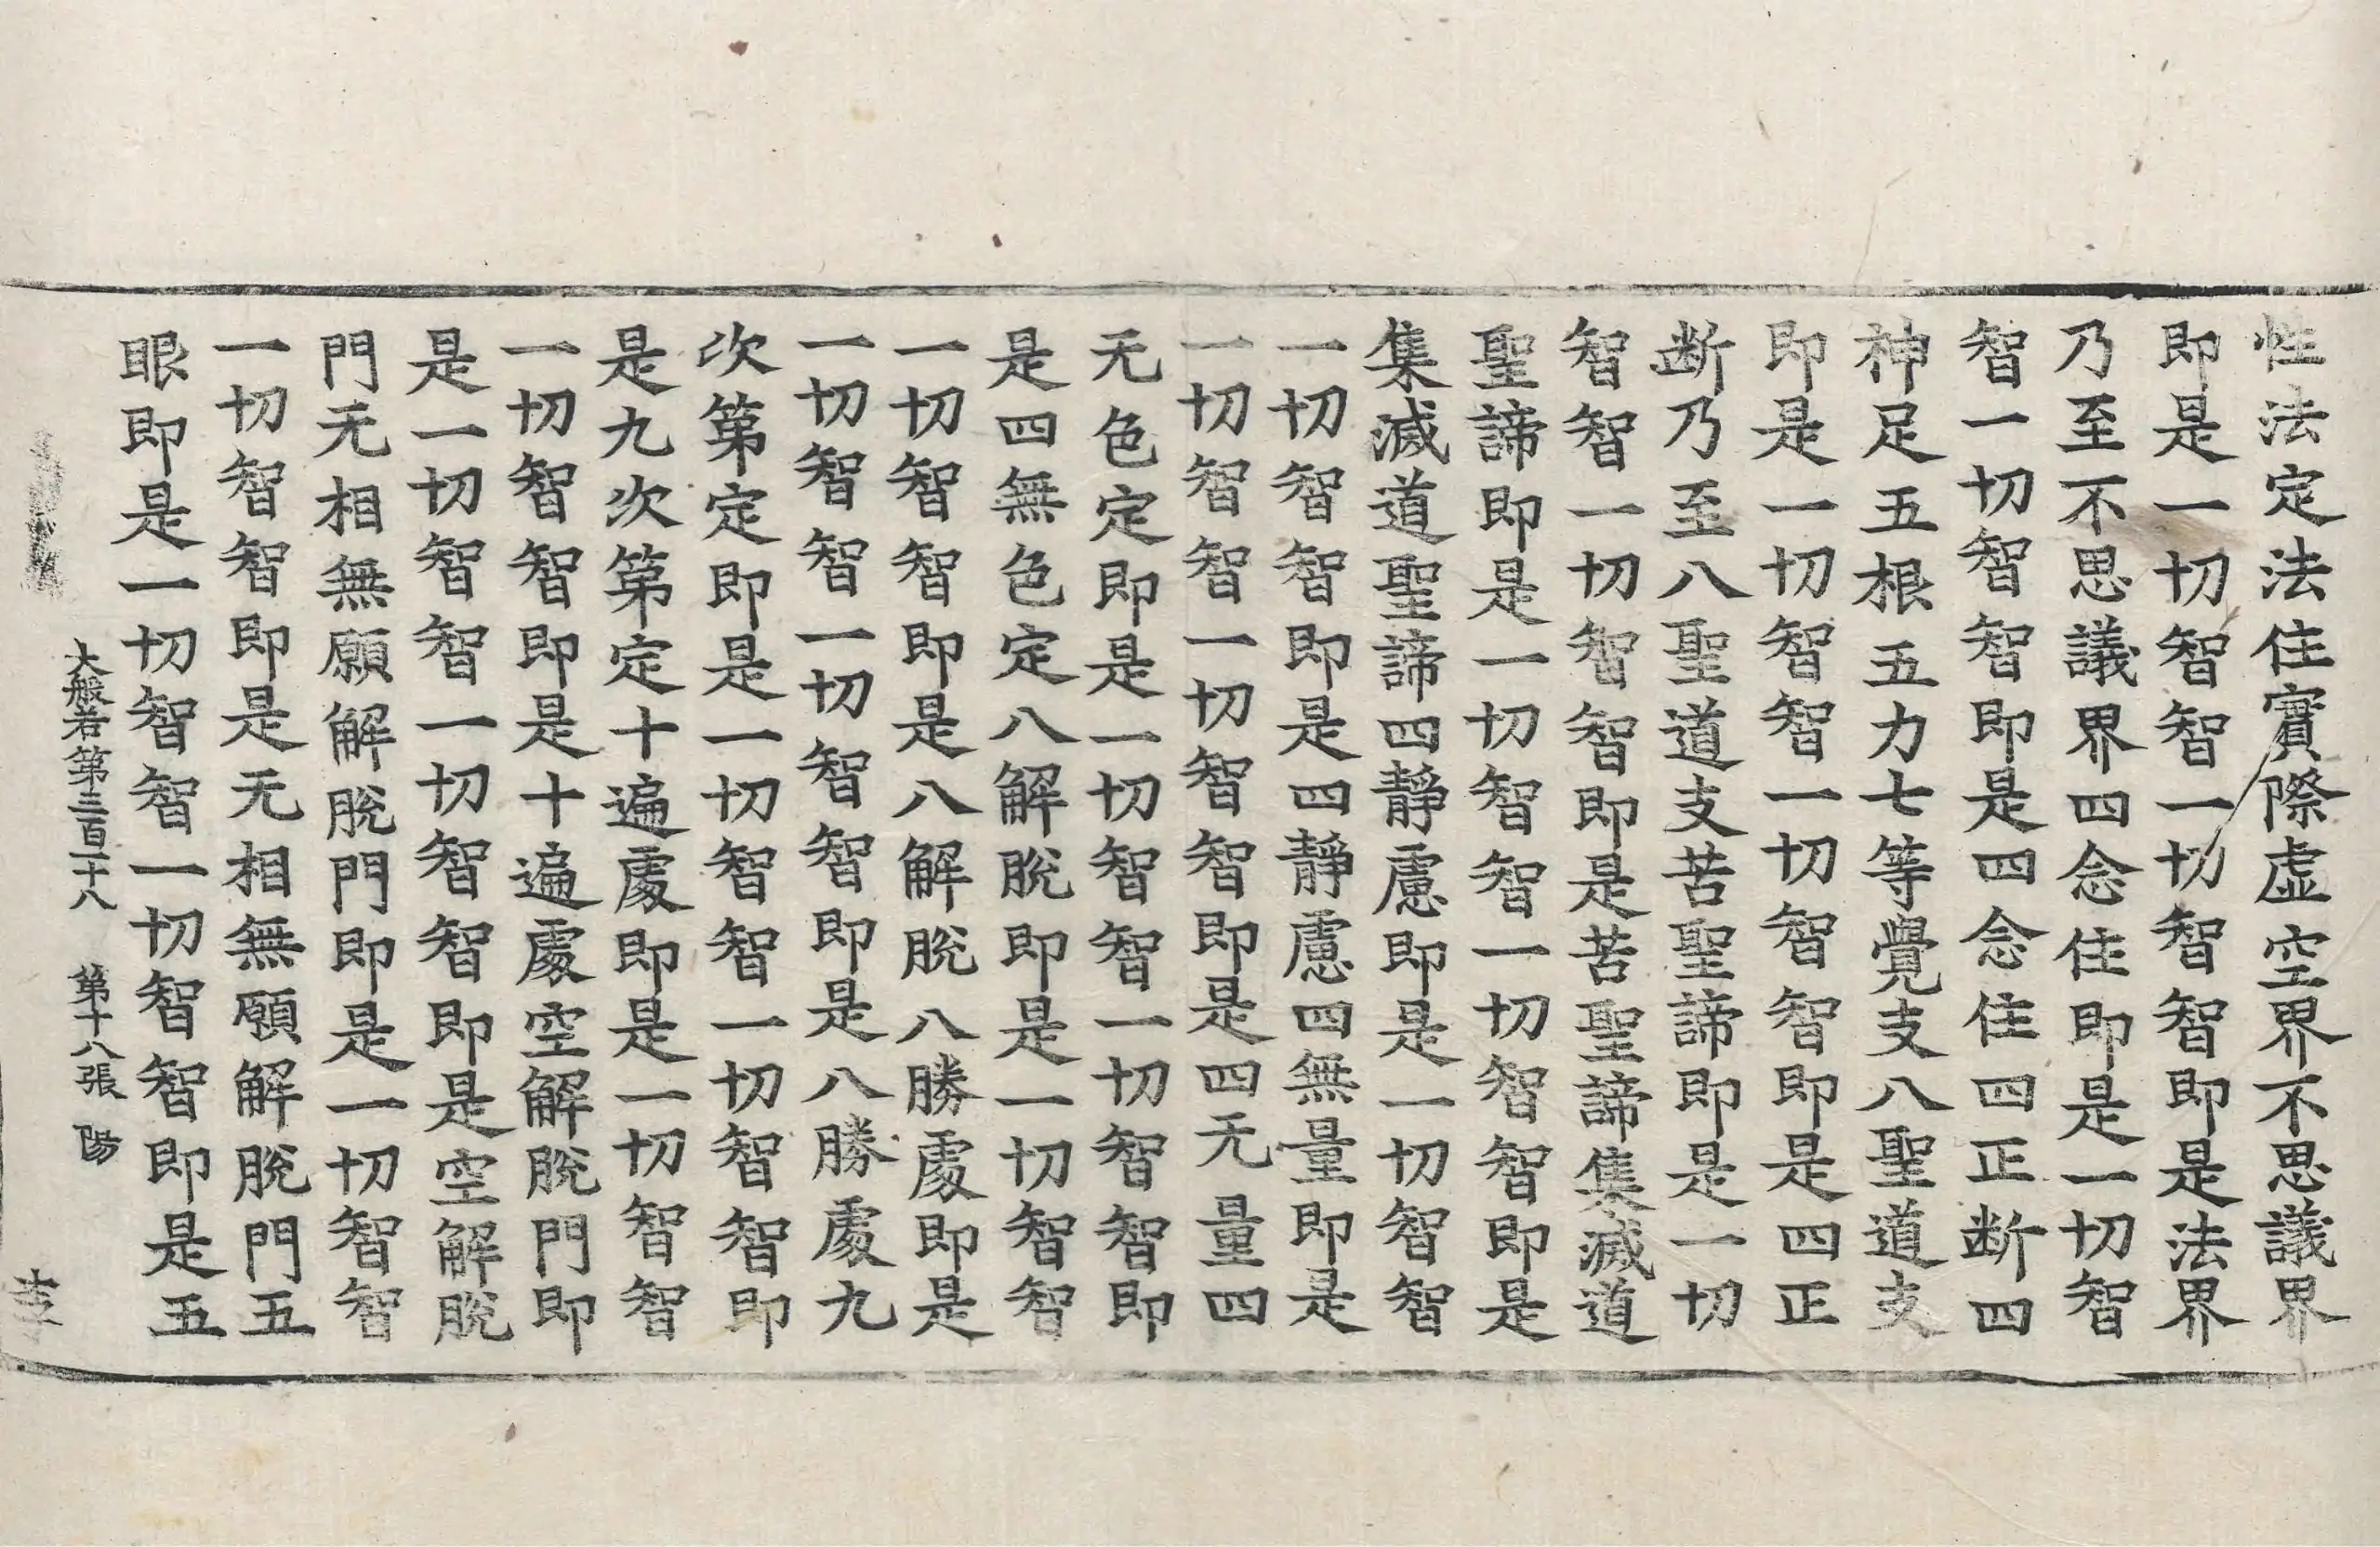 性法定法住實際虛空界不思議界
即是一切智智一切智智即是法界
乃至不思議界四念住即是一切智
智一切智智即是四念住四正断四
神足五根五力七等覺支八聖道支
即是一切智智一切智智即是四正
断乃至八聖道支苦聖諦即是一切
智智一切智智即是苦聖諦集滅道
聖諦即是一切智智一切智智即是
集滅道聖諦四靜慮即是一切智智
一切智智即是四靜慮四無量即是
一切智智一切智智即是四无量四
无色定即是一切智智一切智智即
是四無色定八解脫即是一切智智
一切智智即是八解脫八勝處即是
一切智智一切智智即是八勝處九
次第定即是一切智智一切智智即
是九次第定十遍處即是一切智智
一切智智即是十遍處空解脫門即
是一切智智一切智智即是空解脫
門无相無願解脫門即是一切智智
一切智智即是无相無願解脫門五
眼即是一切智智一切智智即是五
大般若第三百二十八 第十八張 陽